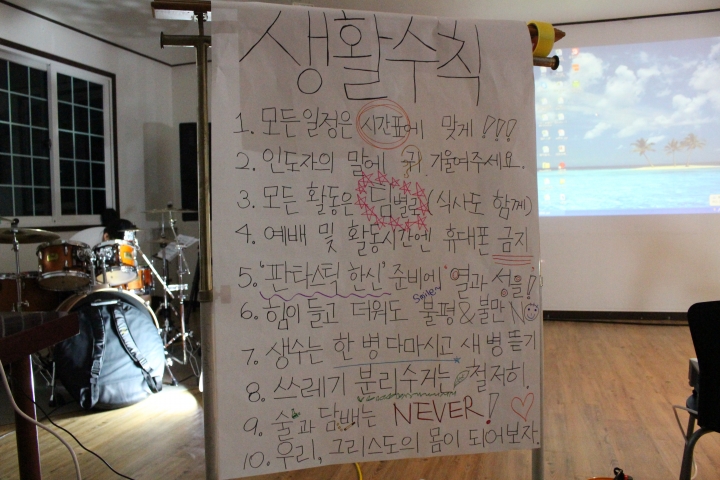 생활수칙
1. 모든 일정은 시간표에 맞게!!!
2. 인도자의 말에 귀 기울여주세요.
3. 모든 활동은 팀별로 (식사도 함께)
4. 예배 및 활동시간엔 휴대폰 금지
5. '판타스틱 한신' 준비에 열과 성을!
Smile~
6. 힘이 들고 더워도 불평&불만 NO
7. 생수는 한 병 다마시고 새 병 뜯기
8. 쓰레기 분리수거는 철저히.
9. 술과 담배는 NEVER!
10. 우리, 그리스도의 몸이 되어보자.